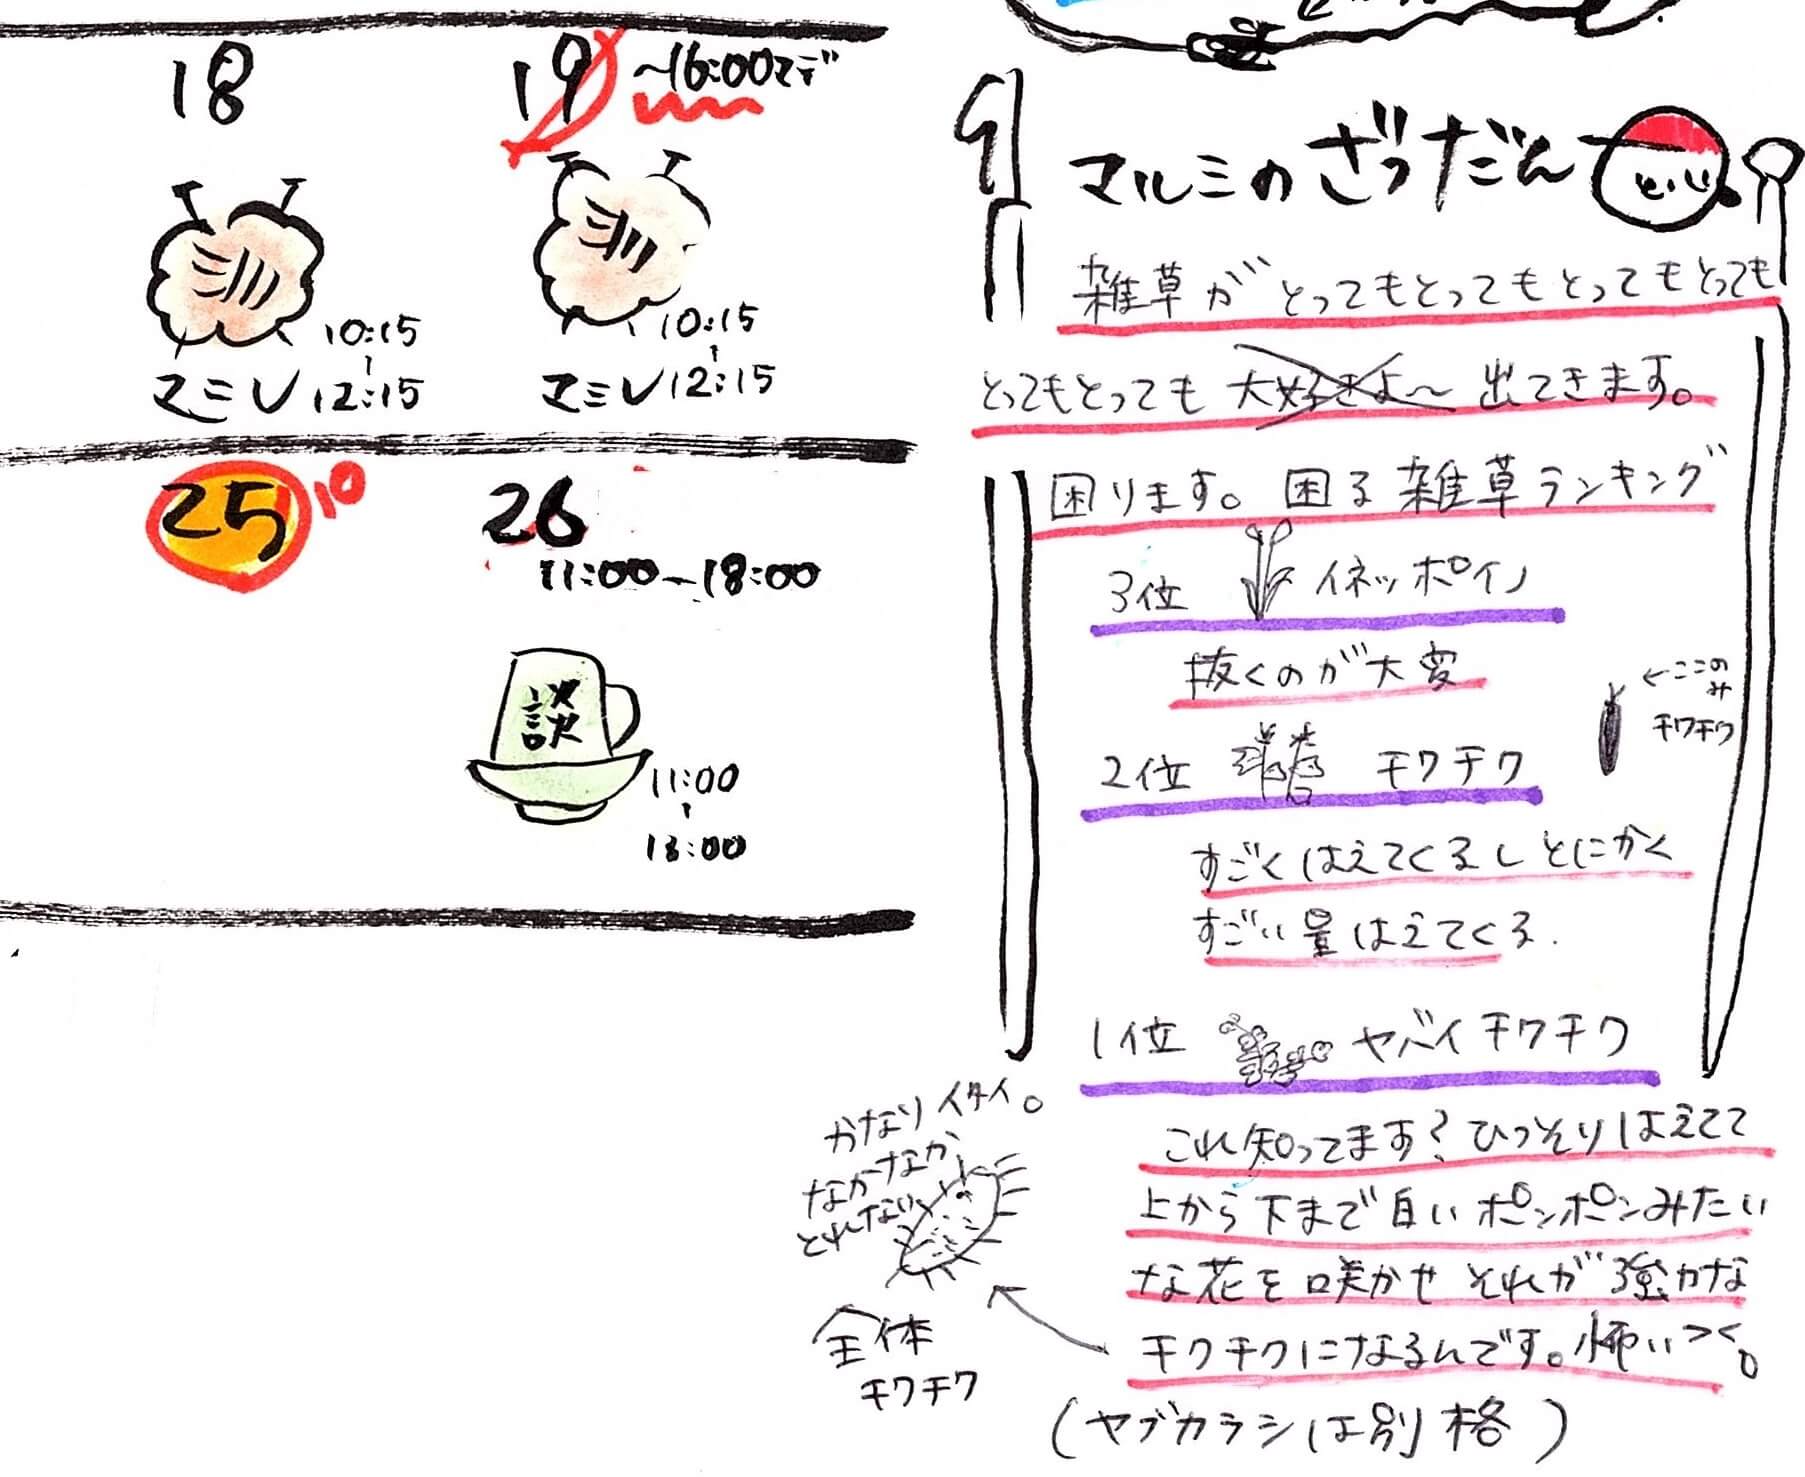 18
10:15
マミレ 12:15
19 〜16:00マデ
10:15
マミレ 12:15
25 10
26
11:00〜18:00
談
11:00
13:00
マルミのざつだん
雑草がとってもとってもとってもとっても
とってもとっても 大好きよ〜 出てきます。
困ります。困る雑草ランキング
3位 イネッポイノ
抜くのが大変
2位 チクチク
←ここの
み
チクチク
すごくはえてくるしとにかく
すごい量はえてくる.
1位 ヤバイチクチク
これ知ってます?ひっそりはえてて
上から下まで白いポンポンみたい
な花を咲かせそれが強力な
チクチクになるんです。怖いっく。
(ヤブカラシは別格)
かなりイタイ。
なかなか
とれない
全体
チクチク